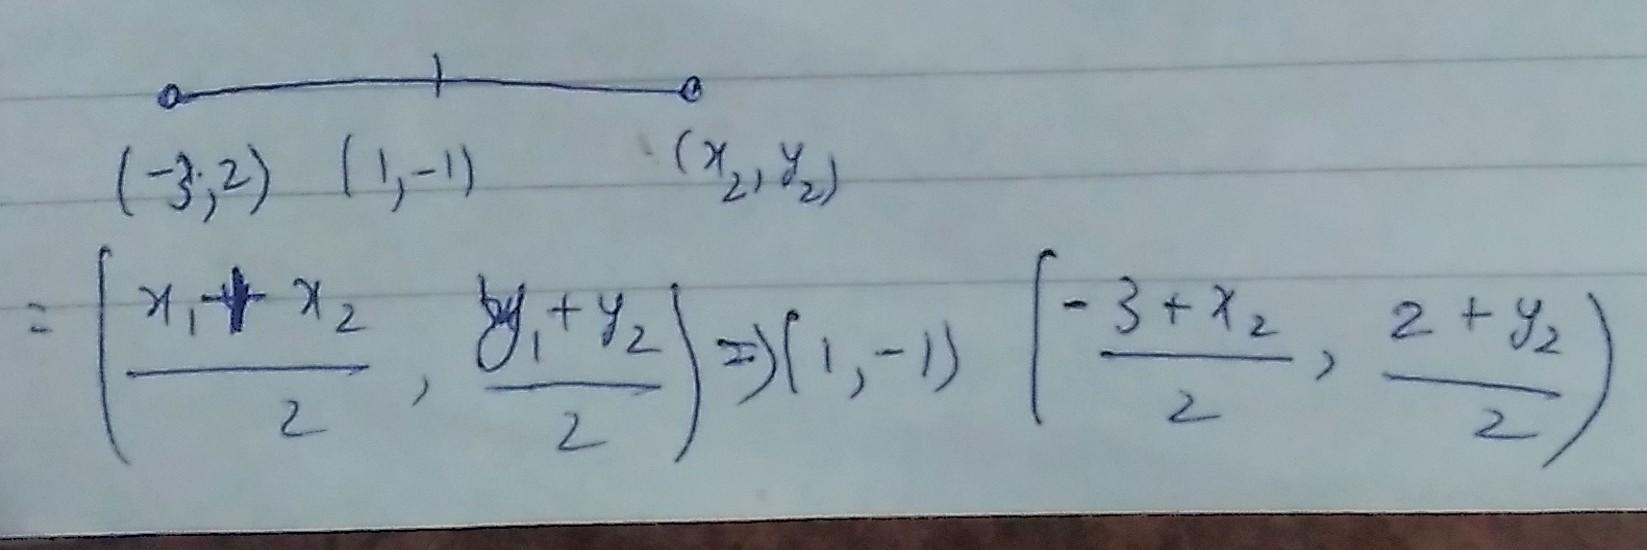 (-3, 2) (1, -1) (x₂, y₂)
= (x₁ + x₂ / 2, y₁ + y₂ / 2) ⇒ (1, -1) (-3 + x₂ / 2, 2 + y₂ / 2)